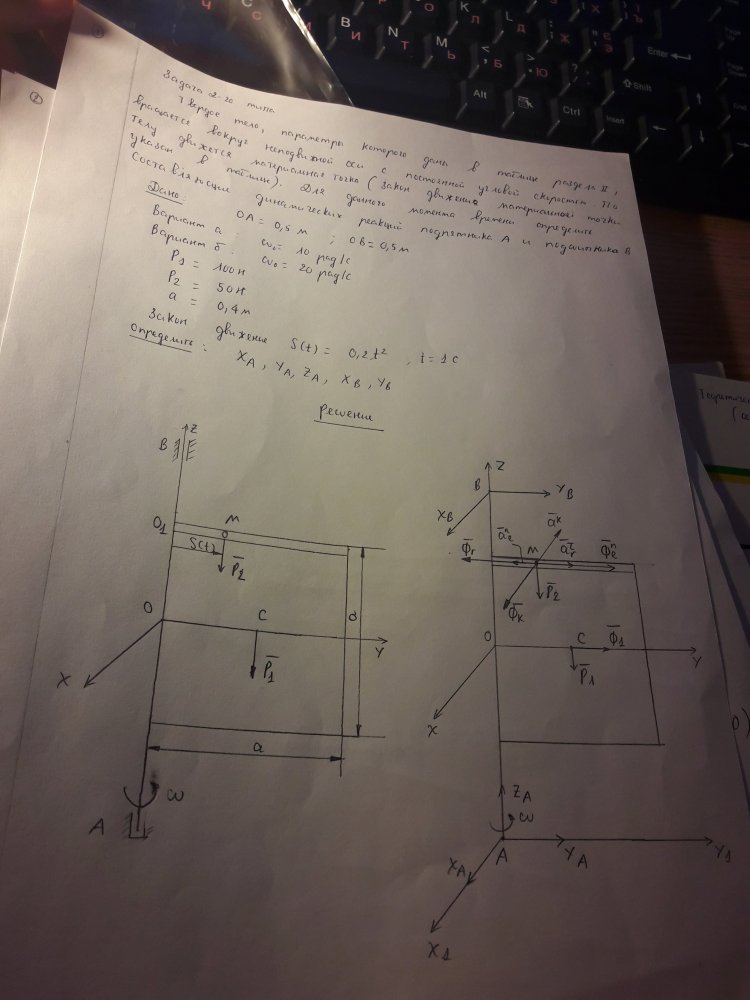 Задача 2-го типа
Твердое тело, параметры которого даны в таблице раздела II,
вращается вокруг неподвижной оси с постоянной угловой скоростью. По
телу движется материальная точка (закон движения материальной точки
указан в таблице). Для данного момента времени определить
составляющие динамических реакций подпятника A и подшипника B
Дано: OA = 0,5 м ; OB = 0,5 м
Вариант а: ω₀ = 10 рад/с
Вариант б: ω₀ = 20 рад/с
P₁ = 100 Н
P₂ = 50 Н
a = 0,4 м
Закон движения S(t) = 0,2t² , t = 1 с
Определить: X_A, Y_A, Z_A, X_B, Y_B
Решение
B Z
O₁ M
S(t) P̅₂
O C
a
X P̅₁ Y
a
ω
A
Z
B Y_B
X_B
a̅ᵏ
Φ̅r a̅ₑⁿ M a̅rᵗ Φ̅ₑⁿ
Φ̅ₖ P̅₂
O C Φ̅₁
Y
P̅₁
X
Z_A
ω
A Y_A Y₁
X_A
X₁
Alt
Ctrl
Shift
Enter
Insert
И В
Т N
Ь M
Б <
Ю >
Л L
К
О
С
Ч